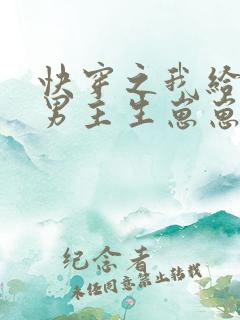 快穿之我给
男主生崽崽
纪念者
未经同意禁止转载